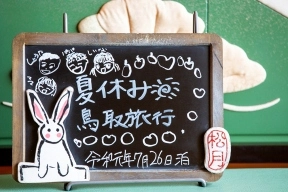 夏休み
鳥取旅行
令和元年7月26日泊
松月